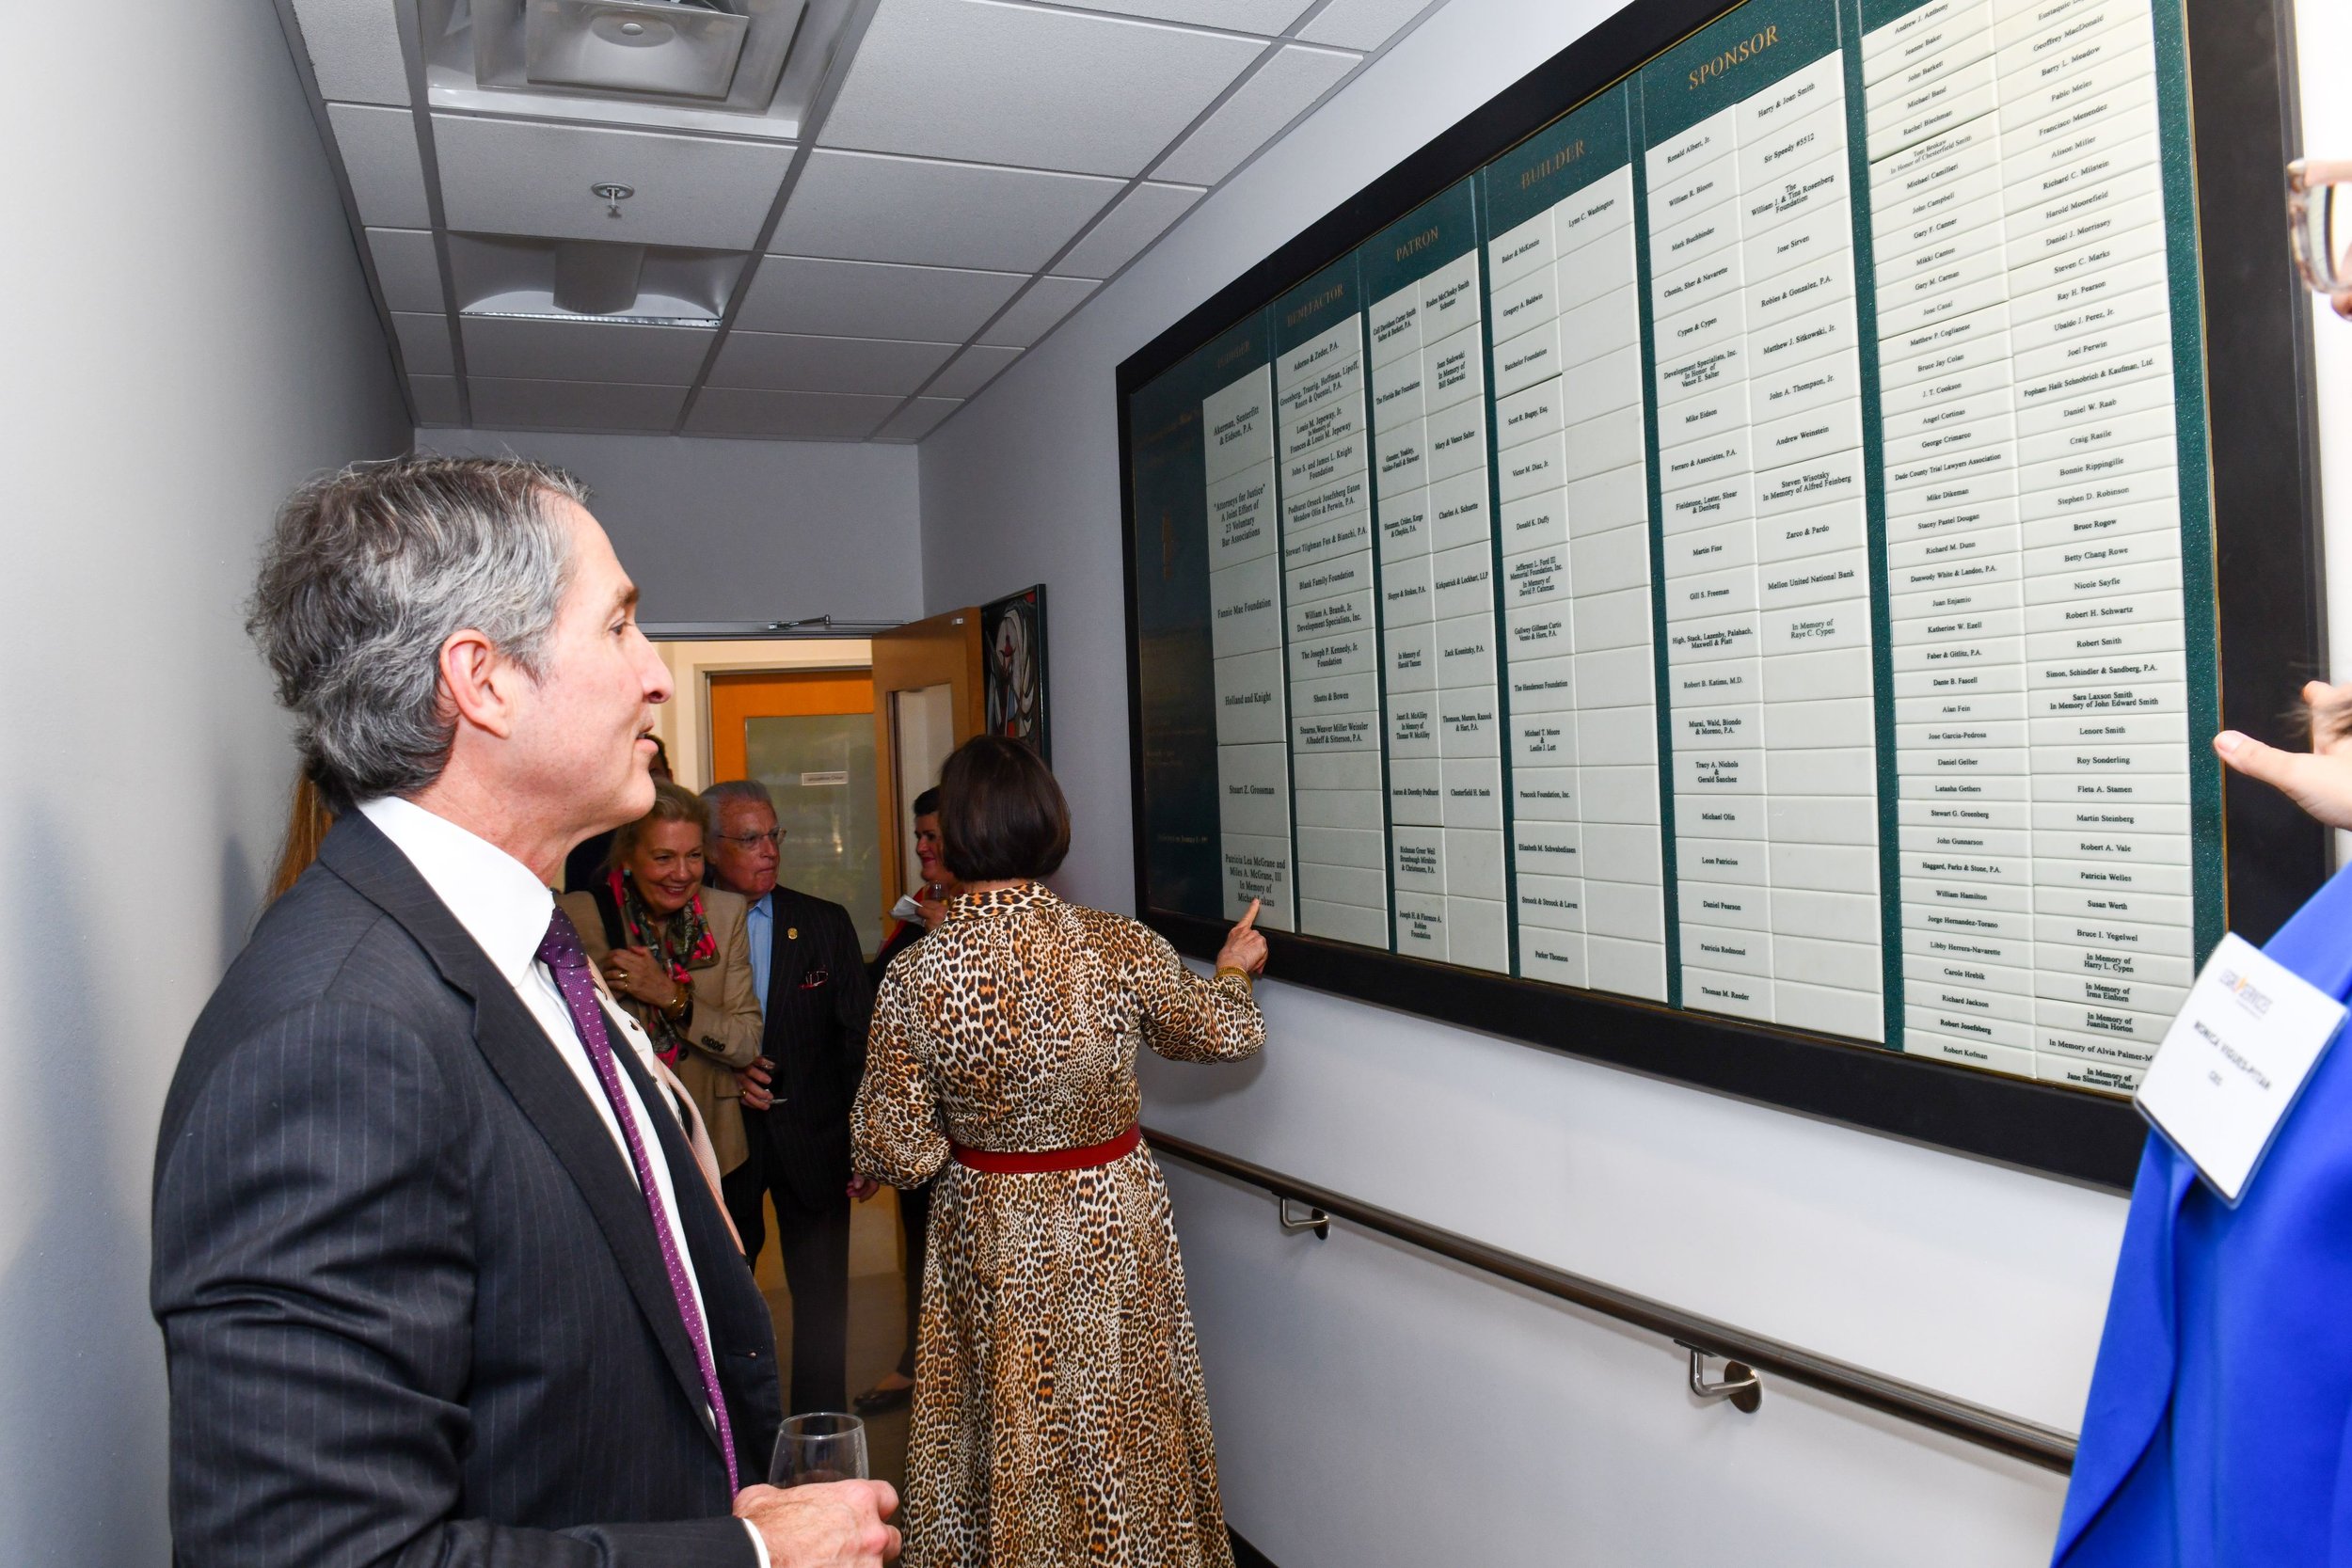 BENEFACTOR
PATRON
BUILDER
SPONSOR
Akerman, Senterfitt
& Eidson, P.A.
"Attorneys for Justice"
A Joint Effort of
23 Voluntary
Bar Associations
Fannie Mae Foundation
Holland and Knight
Stuart Z. Grossman
Patricia Lea McGrane and
Miles A. McGrane, III
In Memory of
Adorno & Zeder, P.A.
Greenberg, Traurig, Hoffman, Lipoff,
Rosen & Quentel, P.A.
Louis M. Jepeway, Jr.
In Memory of
Frances & Louis M. Jepeway
John S. and James L. Knight
Foundation
Podhurst Orseck Josefsberg Eaton
Meadow Olin & Perwin, P.A.
Stewart Tilghman Fox & Bianchi, P.A.
Blank Family Foundation
William A. Brandt, Jr.
Development Specialists, Inc.
The Joseph P. Kennedy, Jr.
Foundation
Shutts & Bowen
Stearns Weaver Miller Weissler
Alhadeff & Sitterson, P.A.
The Florida Bar Foundation
In Memory of
Harold Tannen
Janet R. McAliley
In Memory of
Thomas W. McAliley
Aaron & Dorothy Podhurst
Joseph H. & Florence A.
Roblee
Foundation
Ruden McClosky Smith
Schuster
Joan Sadowski
In Memory of
Bill Sadowski
Mary & Vance Salter
Charles A. Schuette
Kirkpatrick & Lockhart, LLP
Zack Kosnitzky, P.A.
Chesterfield H. Smith
Baker & McKenzie
Gregory A. Baldwin
Batchelor Foundation
Scott R. Bugay, Esq.
Victor M. Diaz, Jr.
Donald K. Duffy
Jefferson L. Ford III
Memorial Foundation, Inc.
In Memory of
David P. Catsman
Gallwey Gillman Curtis
Vento & Horn, P.A.
The Henderson Foundation
Michael T. Moore
&
Leslie J. Lott
Peacock Foundation, Inc.
Elizabeth M. Schwabedissen
Stroock & Stroock & Lavan
Parker Thomson
Lynn C. Washington
Ronald Albert, Jr.
William R. Bloom
Mark Buchbinder
Chonin, Sher & Navarrete
Cypen & Cypen
Development Specialists, Inc.
In Honor of
Vance E. Salter
Mike Eidson
Ferraro & Associates, P.A.
Fieldstone, Lester, Shear
& Denberg
Martin Fine
Gill S. Freeman
High, Stack, Lazenby, Palahach,
Maxwell & Platt
Robert B. Katims, M.D.
Murai, Wald, Biondo
& Moreno, P.A.
Tracy A. Nichols
&
Gerald Sanchez
Michael Olin
Leon Patricios
Daniel Pearson
Patricia Redmond
Thomas M. Reeder
Harry & Joan Smith
Sir Speedy #5512
The
William J. & Tina Rosenberg
Foundation
Jose Sirven
Robles & Gonzalez, P.A.
Matthew J. Sitkowski, Jr.
John A. Thompson, Jr.
Andrew Weinstein
Steven Wisotsky
In Memory of Alfred Feinberg
Zarco & Pardo
Mellon United National Bank
In Memory of
Raye C. Cypen
Andrew J. Anthony
Jeanne Baker
John Barkett
Michael Band
Rachel Blechman
Tom Brokaw
In Honor of Chesterfield Smith
Michael Camilleri
John Campbell
Gary F. Canner
Mikki Canton
Gary M. Carman
Jose Casal
Matthew P. Coglianese
Bruce Jay Colan
J. T. Cookson
Angel Cortinas
George Crimarco
Dade County Trial Lawyers Association
Mike Dikeman
Stacey Pastel Dougan
Richard M. Dunn
Dunwody White & Landon, P.A.
Juan Enjamio
Katherine W. Ezell
Faber & Gitlitz, P.A.
Dante B. Fascell
Alan Fein
Jose Garcia-Pedrosa
Daniel Gelber
Latasha Gethers
Stewart G. Greenberg
John Gunnarson
Haggard, Parks & Stone, P.A.
William Hamilton
Jorge Hernandez-Torano
Libby Herrera-Navarrete
Carole Hrebik
Richard Jackson
Robert Josefsberg
Robert Kofman
Geoffrey MacDonald
Barry L. Meadow
Pablo Meles
Francisco Menendez
Alison Miller
Richard C. Milstein
Harold Moorefield
Daniel J. Morrissey
Steven C. Marks
Ray H. Pearson
Ubaldo J. Perez, Jr.
Joel Perwin
Popham Haik Schnobrich & Kaufman, Ltd.
Daniel W. Raab
Craig Rasile
Bonnie Rippingille
Stephen D. Robinson
Bruce Rogow
Betty Chang Rowe
Nicole Sayfie
Robert H. Schwartz
Robert Smith
Simon, Schindler & Sandberg, P.A.
Sara Laxson Smith
In Memory of John Edward Smith
Lenore Smith
Roy Sonderling
Fleta A. Stamen
Martin Steinberg
Robert A. Vale
Patricia Welles
Susan Werth
Bruce I. Yegelwel
In Memory of
Harry L. Cypen
In Memory of
Irma Einhorn
In Memory of
Juanita Horton
In Memory of Alvia Palmer-M
In Memory of
Jane Simmons Fisher
CEO